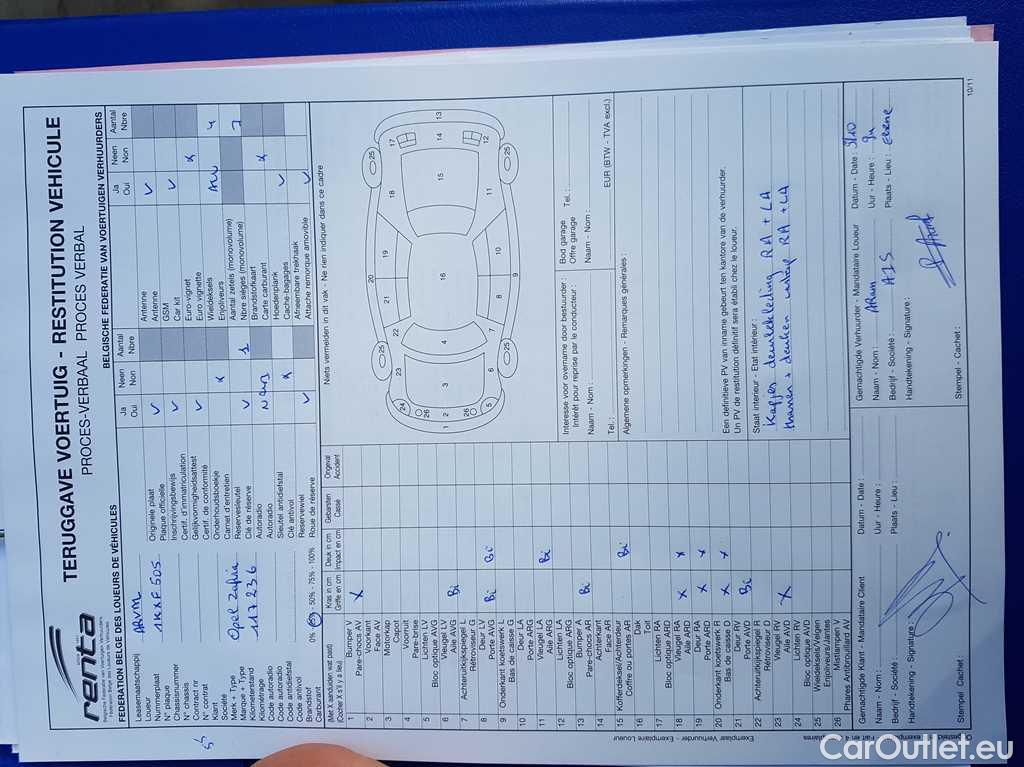 TERUGGAVE VOERTUIG - RESTITUTION VEHICULE
PROCES-VERBAAL PROCES VERBAL
renta
FEDERATION BELGE DES LOUEURS DE VÉHICULES
BELGISCHE FEDERATIE VAN VOERTUIGEN VERHUURDERS
Leasemaatschappij
Loueur
ARVM
Nummerplaat
N° plaque
1KXF505
Chassisnummer
N° chassis
Contract nr
N° contrat
Klant
Société
Merk + Type
Marque + Type
Opel Zafira
Kilometerstand
Kilométrage
117236
Code autoradio
Code autoradio
Code antidiefstal
Code antivol
Brandstof
Carburant
0% - 50% - 75% - 100%
Ja
Oui
Neen
Non
Aantal
Nbre
Originele plaat
Plaque officielle
V
Inschrijvingsbewijs
Certif. d'immatriculation
V
Gelijkvormigheidsattest
Certif. de conformité
V
Onderhoudsboekje
Carnet d'entretien
X
Reservesleutel
Clé de réserve
V
1
Autoradio
Autoradio
Sleutel antidiefstal
Clé antivol
X
Reservewiel
Roue de réserve
V
Ja
Oui
Neen
Non
Aantal
Nbre
Antenne
Antenne
V
GSM
Car kit
V
Euro-vignet
Euro vignette
X
Wieldeksels
Enjoliveurs
ALU
4
Aantal zetels (monovolume)
Nbre sièges (monovolume)
7
Brandstofkaart
Carte carburant
X
Hoedenplank
Cache-bagages
V
Afneembare trekhaak
Attache remorque amovible
V
(Met X aanduiden wat past)
(Cocher X s'il y a lieu)
Kras in cm
Griffe en cm
Deuk in cm
Impact en cm
Gebarsten
Cassé
Ongeval
Accident
1 Bumper V
Pare-chocs AV
X
2 Voorkant
Face AV
3 Motorkap
Capot
4 Voorruit
Pare-brise
5 Lichten LV
Bloc optique AVG
6 Vleugel LV
Aile AVG
Bi
7 Achteruitkijkspiegel L
Rétroviseur G
8 Deur LV
Porte AVG
Bi Bi
9 Onderkant koetswerk L
Bas de caisse G
10 Deur LA
Porte ARG
11 Vleugel LA
Aile ARG
Bi
12 Lichten LA
Bloc optique ARG
13 Bumper A
Pare-chocs AR
Bi
14 Achterkant
Face AR
15 Kofferdeksel/Achterdeur
Coffre ou portes AR
Bi
16 Dak
Toit
17 Lichten RA
Bloc optique ARD
18 Vleugel RA
Aile ARD
X X
19 Deur RA
Porte ARD
X X
20 Onderkant koetswerk R
Bas de caisse D
X X
21 Deur RV
Porte AVD
Bi
22 Achteruitkijkspiegel R
Rétroviseur D
23 Vleugel RV
Aile AVD
X
24 Lichten RV
Bloc optique AVD
25 Wieldeksels/Velgen
Enjoliveurs/Jantes
26 Mistlampen AV
Phares Antibrouillard AV
Niets vermelden in dit vak - Ne rien indiquer dans ce cadre
Interesse voor overname door bestuurder :
Intérêt pour reprise par le conducteur :
Naam - Nom :
Tel. :
Bod garage
Offre garage
Tel. :
Naam - Nom :
EUR (BTW - TVA excl.)
Algemene opmerkingen - Remarques générales :
Een definitieve PV van inname gebeurt ten kantore van de verhuurder.
Un PV de restitution définitif sera établi chez le loueur.
Staat interieur - Etat intérieur :
RA + LA
RA + LA
Gemachtigde Klant - Mandataire Client
Naam - Nom :
Bedrijf - Société :
Handtekening - Signature :
Stempel - Cachet :
Datum - Date :
Uur - Heure :
Plaats - Lieu :
Gemachtigde Verhuurder - Mandataire Loueur
Naam - Nom :
Bedrijf - Société :
AIS
Handtekening - Signature :
Stempel - Cachet :
Datum - Date :
Uur - Heure :
Plaats - Lieu :
Exemplaar Verhuurder - Exemplaire Loueur
10/11
CarOutlet.eu